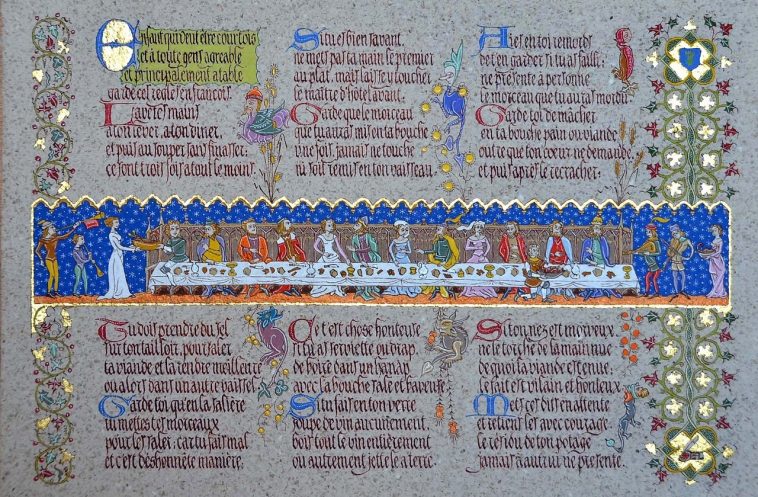 Enfant qui veut être courtois
et à toute gens agréable
et principalement à table
garde ces règles en françois.
Lave tes mains
à ton lever, à ton dîner,
et puis au souper sans finasser:
ce sont trois fois à tout le moins.
Si tu es bien savant,
ne mets pas ta main le premier
au plat, mais laisse y toucher
le maître d'hôtel avant.
Garde que le morceau
que tu auras mis en ta bouche
une fois, jamais ne touche
ni soit remis en ton vaisseau.
Aies en toi remords
de t'en garder si tu as failli,
ne présente à personne
le morceau que tu auras mordu
Garde toi de mâcher
en ta bouche pain ou viande
outre que ton coeur ne demande,
et puis après le recracher.
Tu dois prendre du sel
sur ton tailloir, pour saler
ta viande et la rendre meilleure
ou alors dans un autre vaissel.
Garde toi qu'en la salière
tu mettes tes morceaux
pour les saler: car tu fais mal
et c'est déshonnête manière.
Ce t'est chose honteuse
si tu as serviette ou drap,
de boire dans un hanap
avec la bouche sale et baveuse.
Si tu fais en ton verre
soupe de vin aucunement,
bois tout le vin entièrement
ou autrement jette le à terre.
Si ton nez est morveux
ne le torche de la main nue
de quoi ta viande est tenue:
le fait est vilain et honteux
Mets ces dits en attente
et retient les avec courage.
le résidu de ton potage
jamais à autrui ne présente.